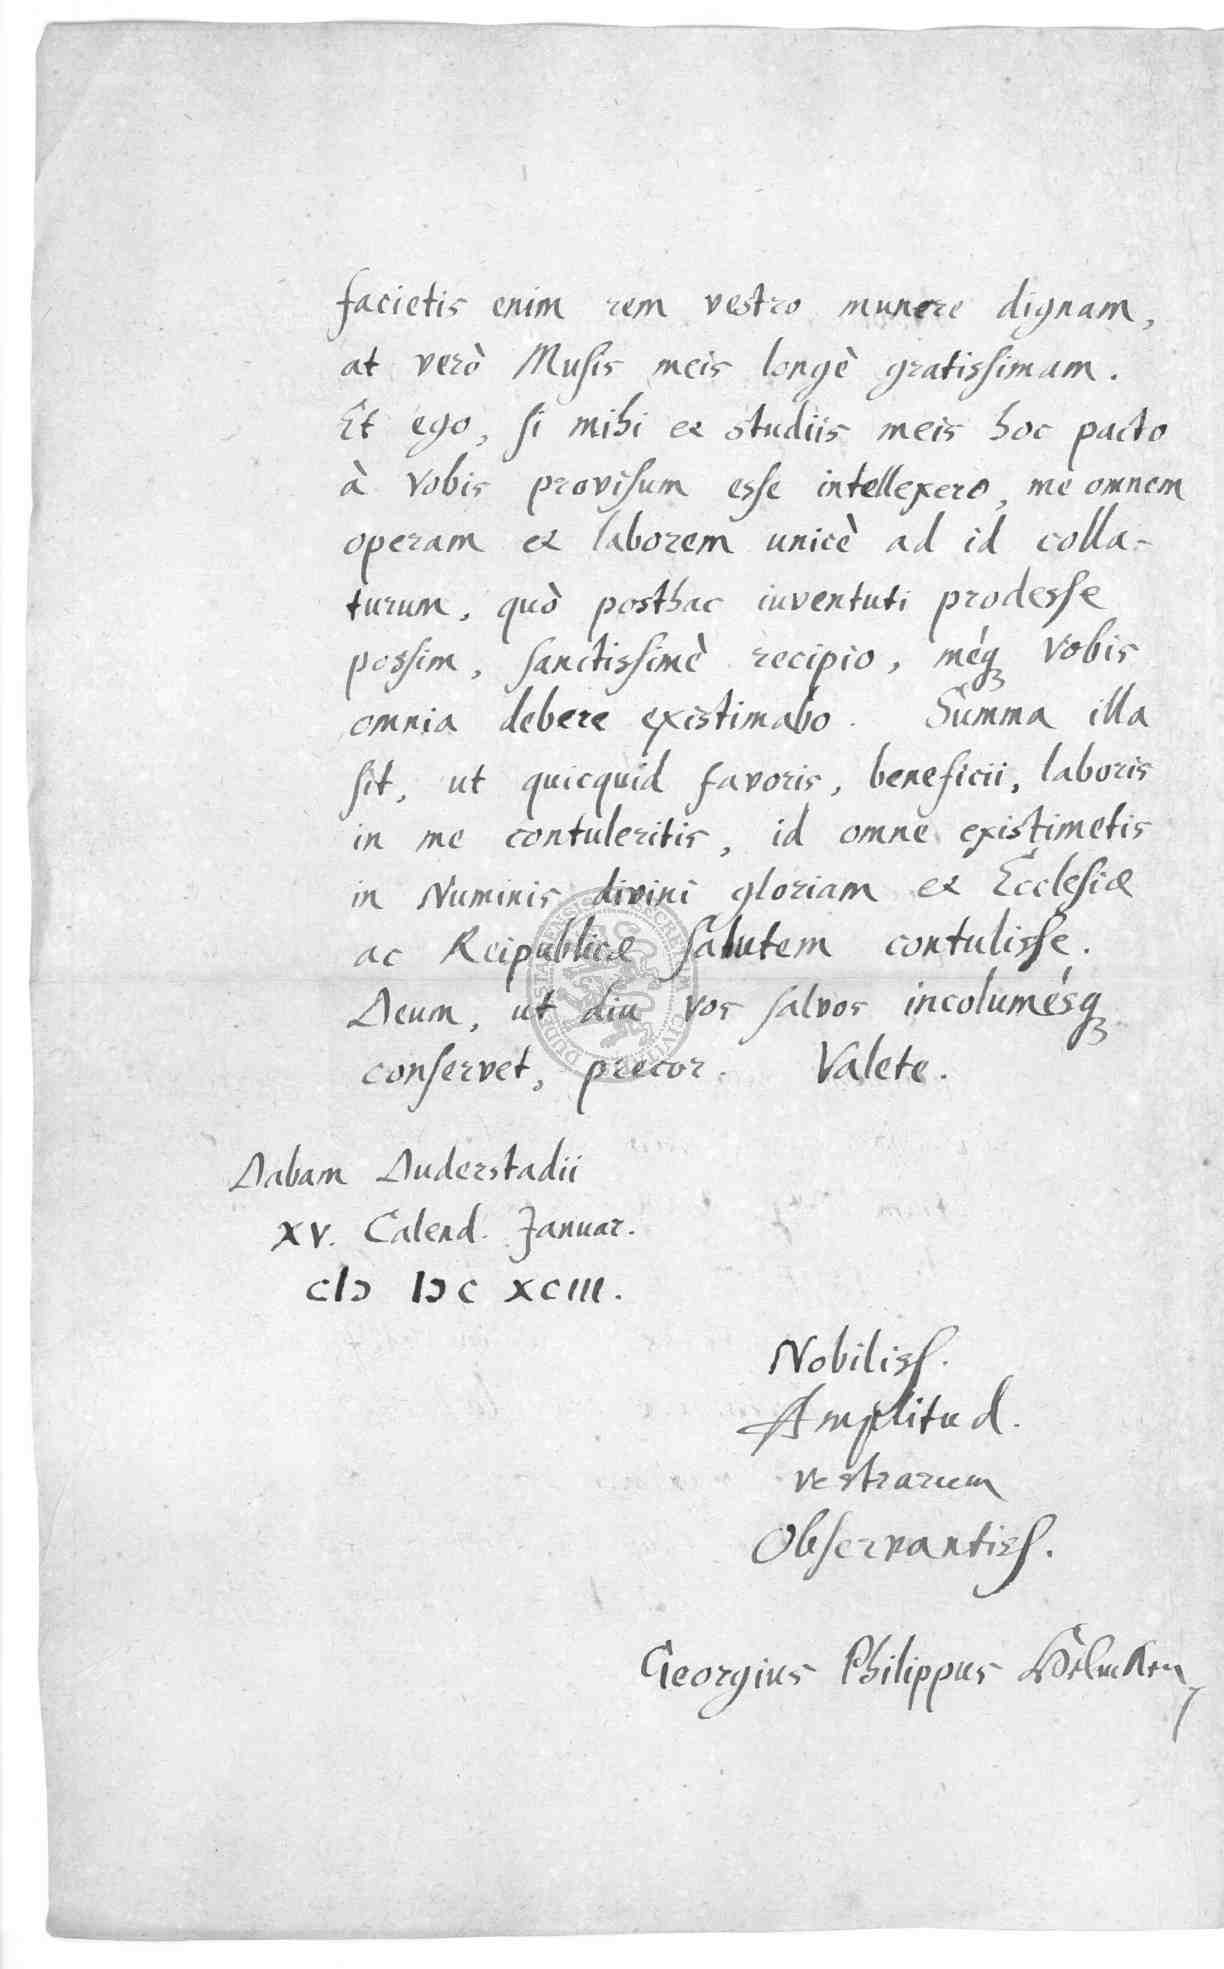 facietis enim rem vestro munere dignam,
at verò Musis meis longè gratissimam.
Et ego, si mihi et studiis meis hoc pacto
à vobis provisum esse intellexero, me omnem
operam et laborem unicè ad id colla-
turum, quò posthac iuventuti prodesse
possim, sanctissimè recipio, méq vobis
omnia debere existimabo. Summa illa
sit, ut quicquid favoris, beneficii, laboris
in me contuleritis, id omne existimetis
in Numinis divini gloriam et Ecclesiæ
ac Reipublicæ salutem contulisse.
Deum, ut diu vos salvos incolumésq
conservet, precor. Valete.
Dabam Duderstadii
XV. Calend. Januar.
CIↃ IↃC XCIII.
Nobiliss.
Amplitud.
vestrarum
Observantiss.
Georgius Philippus